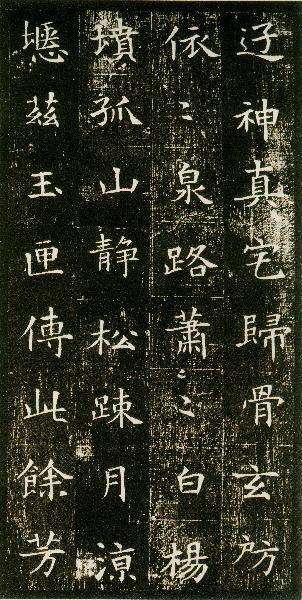 迓神真宅歸骨玄房
依〻泉路蕭〻白楊
墳孤山静松踈月涼
瘞茲玉匣傳此餘芳